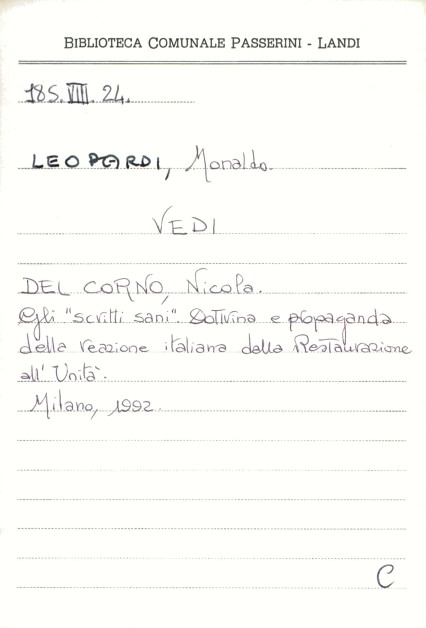 BIBLIOTECA COMUNALE PASSERINI - LANDI
185.VIII.24.
LEOPARDI, Monaldo.
VEDI
DEL CORNO, Nicola.
Gli "scritti sani". Dottrina e propaganda
della reazione italiana dalla Restaurazione
all'Unità.
Milano, 1992.
C